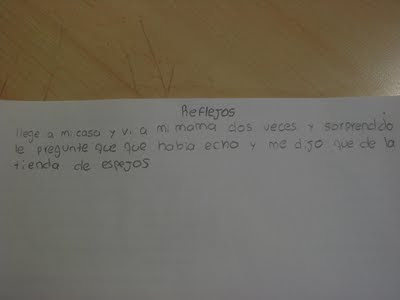 Reflejos
llege a mi casa y vi a mi mama dos veces y sorprendido
le pregunte que que habia echo y me dijo que de la
tienda de espejos